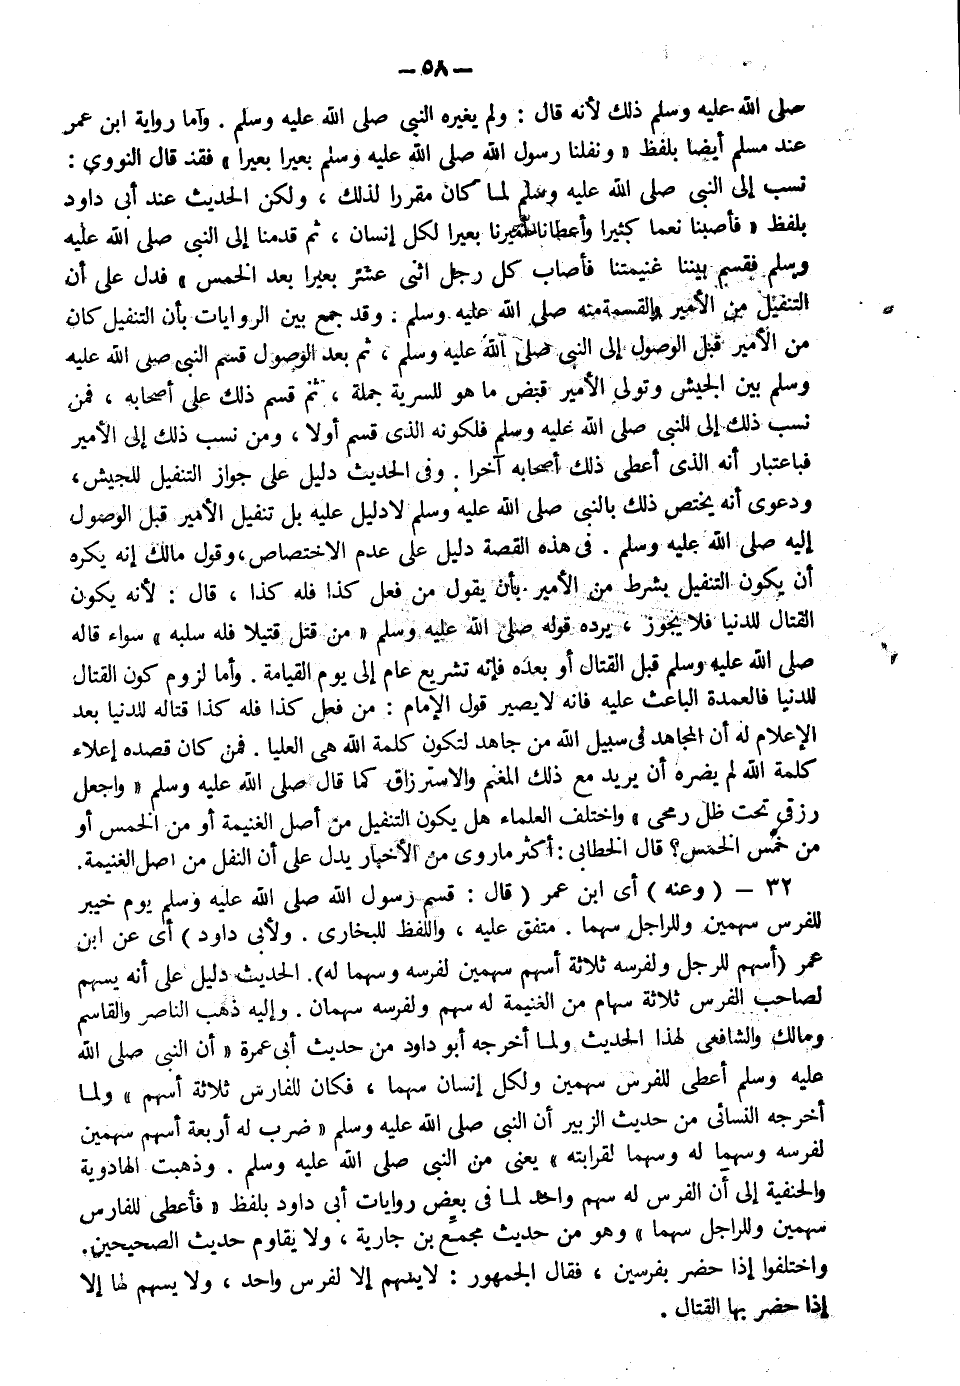 — ٥٨ —
صلى الله عليه وسلم ذلك لأنه قال : ولم يغيره النبى صلى الله عليه وسلم . وأما رواية ابن عمر
عند مسلم أيضا بلفظ « ونفلنا رسول الله صلى الله عليه وسلم بعيرا بعيرا » فقد قال النووى :
نسب إلى النبى صلى الله عليه وسلم لما كان مقررا لذلك ، ولكن الحديث عند أبى داود
بلفظ « فأصبنا نعما كثيرا وأعطانا أميرنا بعيرا لكل إنسان ، ثم قدمنا إلى النبى صلى الله عليه
وسلم فقسم بيننا غنيمتنا فأصاب كل رجل اثنى عشر بعيرا بعد الخمس » فدل على أن
التنفيل من الأمير والقسمة منه صلى الله عليه وسلم . وقد جمع بين الروايات بأن التنفيل كان
من الأمير قبل الوصول إلى النبى صلى الله عليه وسلم ، ثم بعد الوصول قسم النبى صلى الله عليه
وسلم بين الجيش وتولى الأمير قبض ما هو للسرية جملة ، ثم قسم ذلك على أصحابه ، فمن
نسب ذلك إلى النبى صلى الله عليه وسلم فلكونه الذى قسم أولا ، ومن نسب ذلك إلى الأمير
فباعتبار أنه الذى أعطى ذلك أصحابه آخرا . وفى الحديث دليل على جواز التنفيل للجيش ،
ودعوى أنه يختص ذلك بالنبى صلى الله عليه وسلم لا دليل عليه بل تنفيل الأمير قبل الوصول
إليه صلى الله عليه وسلم . فى هذه القصة دليل على عدم الاختصاص ، وقول مالك إنه يكره
أن يكون التنفيل بشرط من الأمير بأن يقول من فعل كذا فله كذا ، قال : لأنه يكون
القتال للدنيا فلا يجوز ، يرده قوله صلى الله عليه وسلم « من قتل قتيلا فله سلبه » سواء قاله
صلى الله عليه وسلم قبل القتال أو بعده فإنه تشريع عام إلى يوم القيامة . وأما لزوم كون القتال
للدنيا فالعمدة الباعث عليه فانه لا يصير قول الإمام : من فعل كذا فله كذا قتاله للدنيا بعد
الإعلام له أن المجاهد فى سبيل الله من جاهد لتكون كلمة الله هى العليا . فمن كان قصده إعلاء
كلمة الله لم يضره أن يريد مع ذلك المغنم والاسترزاق كما قال صلى الله عليه وسلم « واجعل
رزقى تحت ظل رمحى » واختلف العلماء هل يكون التنفيل من أصل الغنيمة أو من الخمس أو
من خمس الخمس؟ قال الخطابى : أكثر ماروى من الأخبار يدل على أن النفل من اصل الغنيمة .
٣٢ — ( وعنه ) أى ابن عمر ( قال : قسم رسول الله صلى الله عليه وسلم يوم خيبر
للفرس سهمين وللراجل سهما . متفق عليه ، واللفظ للبخارى . ولأبى داود ) أى عن ابن
عمر (أسهم للرجل ولفرسه ثلاثة أسهم سهمين لفرسه وسهما له). الحديث دليل على أنه يسهم
لصاحب الفرس ثلاثة سهام من الغنيمة له سهم ولفرسه سهمان . وإليه ذهب الناصر والقاسم
ومالك والشافعى لهذا الحديث ولما أخرجه أبو داود من حديث أبى عمرة « أن النبى صلى الله
عليه وسلم أعطى للفرس سهمين ولكل إنسان سهما ، فكان للفارس ثلاثة أسهم » ولما
أخرجه النسائى من حديث الزبير أن النبى صلى الله عليه وسلم « ضرب له أربعة أسهم سهمين
لفرسه وسهما له وسهما لقرابته » يعنى من النبى صلى الله عليه وسلم . وذهبت الهادوية
والحنفية إلى أن الفرس له سهم واحد لما فى بعض روايات أبى داود بلفظ « فأعطى للفارس
سهمين وللراجل سهما » وهو من حديث مجمع بن جارية ، ولا يقاوم حديث الصحيحين .
واختلفوا إذا حضر بفرسين ، فقال الجمهور : لا يسهم إلا لفرس واحد ، ولا يسهم لها إلا
إذا حضر بها القتال .